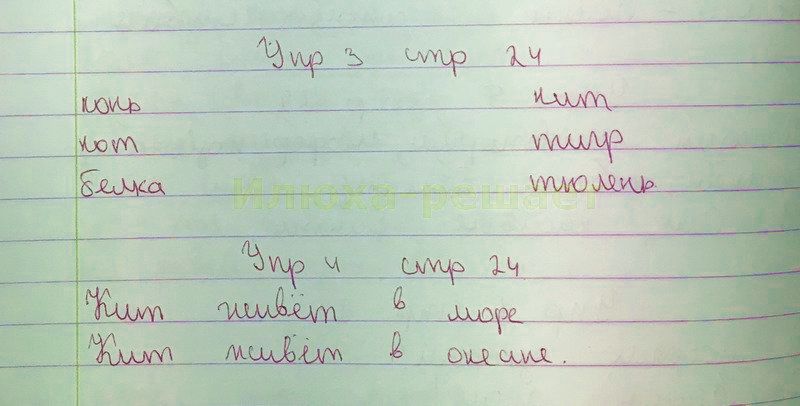 Упр 3 стр 24
конь кит
кот тигр
белка тюлень
Илюха-решает
Упр 4 стр 24
Кит живёт в море
Кит живёт в океане.